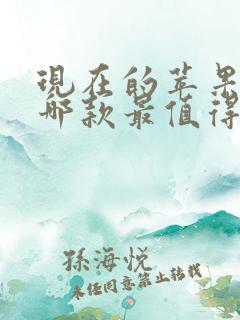 现在的苹果
哪款最值得
孙海悦
未经同意禁止转载